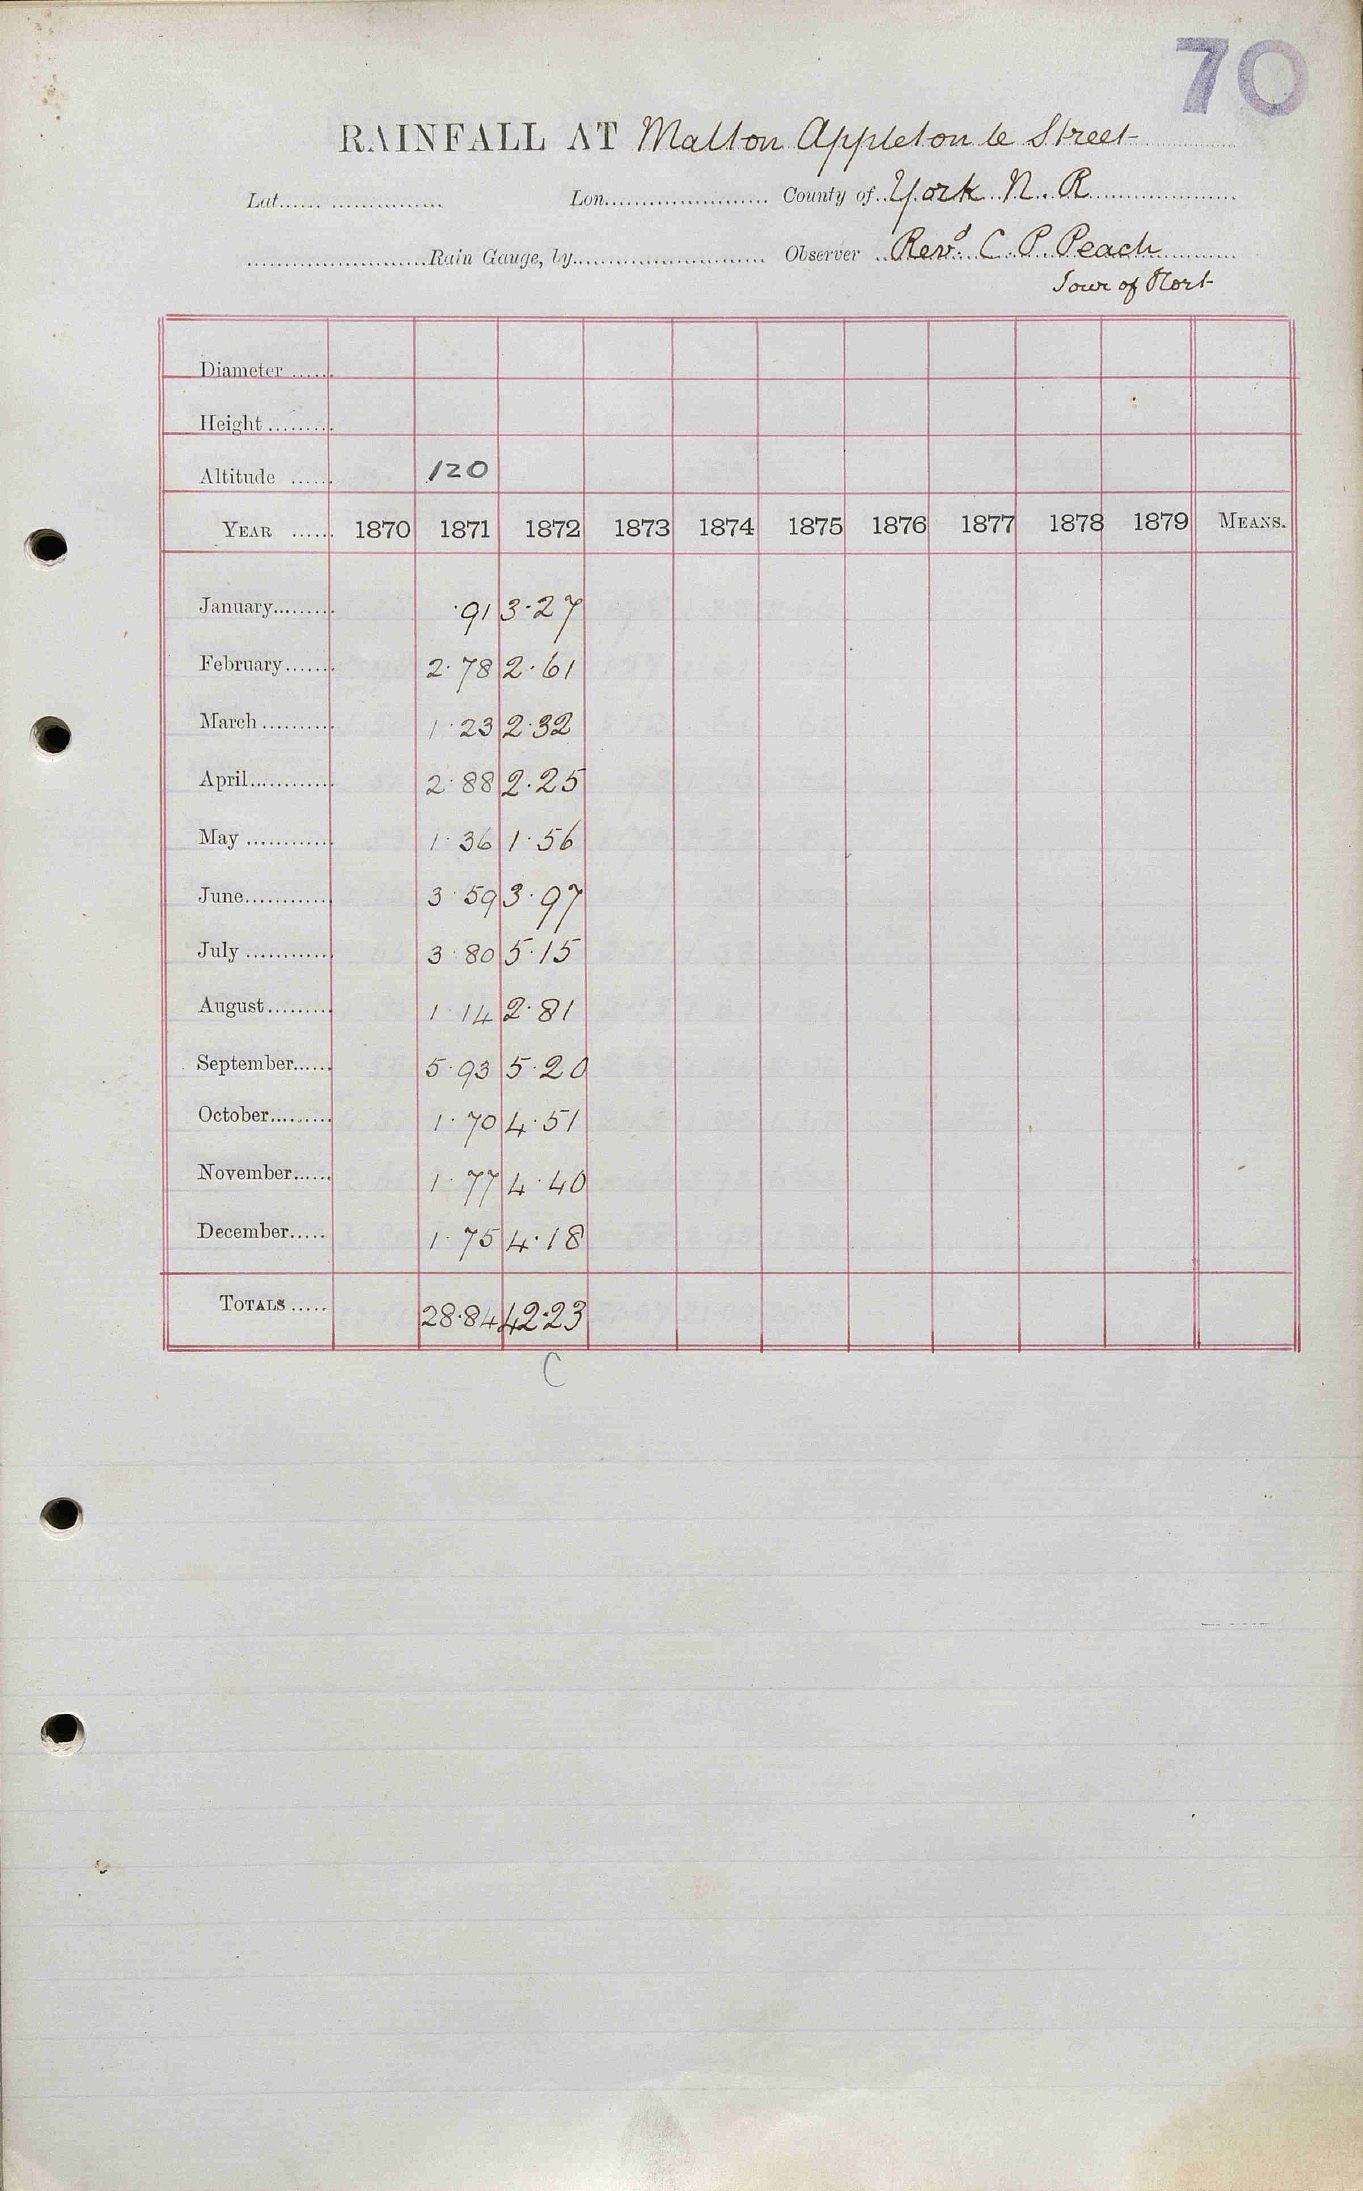 70
RAINFALL AT Malton Appleton le Street
Lat. Lon. County of York N. R
Rain Gauge, by Observer Revd. C. P. Peach
Jour of Hort
Diameter
Height
Altitude 120
YEAR 1870 1871 1872 1873 1874 1875 1876 1877 1878 1879 MEANS.
January .91 3.27
February 2.78 2.61
March 1.23 2.32
April 2.88 2.25
May 1.36 1.56
June 3.59 3.97
July 3.80 5.15
August 1.14 2.81
September 5.93 5.20
October 1.70 4.51
November 1.77 4.40
December 1.75 4.18
TOTALS 28.84 42.23
C